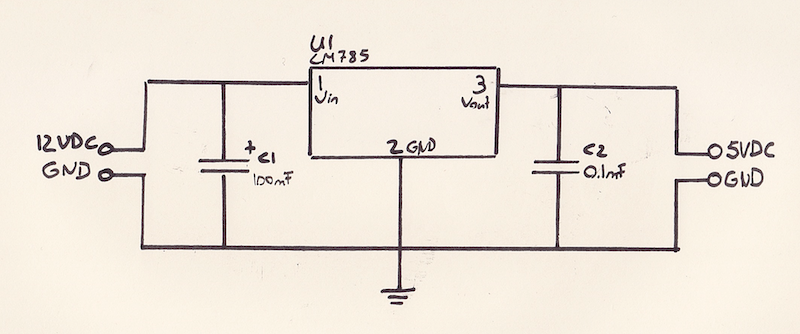 U1
LM785
1
Vin
3
Vout
2 GND
12VDC
GND
+
C1
100mF
C2
0.1mF
5VDC
GND